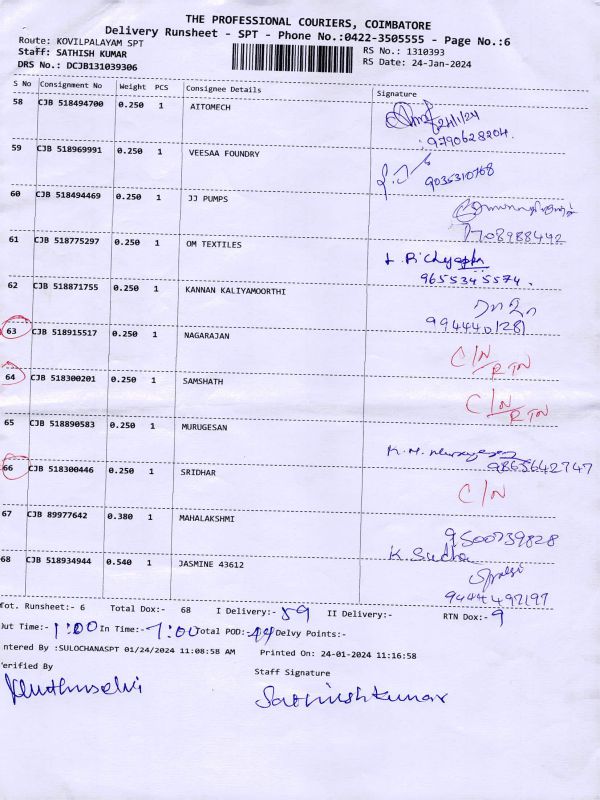 THE PROFESSIONAL COURIERS, COIMBATORE
Delivery Runsheet - SPT - Phone No.:0422-3505555 - Page No.:6
Route: KOVILPALAYAM SPT
RS No.: 1310393
Staff: SATHISH KUMAR
RS Date: 24-Jan-2024
DRS No.: DCJB131039306
S No Consignment No Weight PCS Consignee Details Signature
58 CJB 518494700 0.250 1 AITOMECH
24/1/24
9790628204.
59 CJB 518969991 0.250 1 VEESAA FOUNDRY
9035310768
60 CJB 518494469 0.250 1 JJ PUMPS
7708988442
61 CJB 518775297 0.250 1 OM TEXTILES
9655345574.
62 CJB 518871755 0.250 1 KANNAN KALIYAMOORTHI
9944401281
63 CJB 518915517 0.250 1 NAGARAJAN C/N RTN
64 CJB 518300201 0.250 1 SAMSHATH C/N RTN
65 CJB 518890583 0.250 1 MURUGESAN
9865642747
66 CJB 518300446 0.250 1 SRIDHAR C/N
67 CJB 89977642 0.380 1 MAHALAKSHMI 9500739828
K. Sudha
68 CJB 518934944 0.540 1 JASMINE 43612
9444497197
Tot. Runsheet:- 6 Total Dox:- 68 I Delivery:- 59 II Delivery:- RTN Dox:- 9
Out Time:- 1:00 In Time:- 7:00 Total POD:- 44 Delvy Points:-
ntered By :SULOCHANASPT 01/24/2024 11:08:58 AM Printed On: 24-01-2024 11:16:58
erified By Staff Signature
Sathishkumar